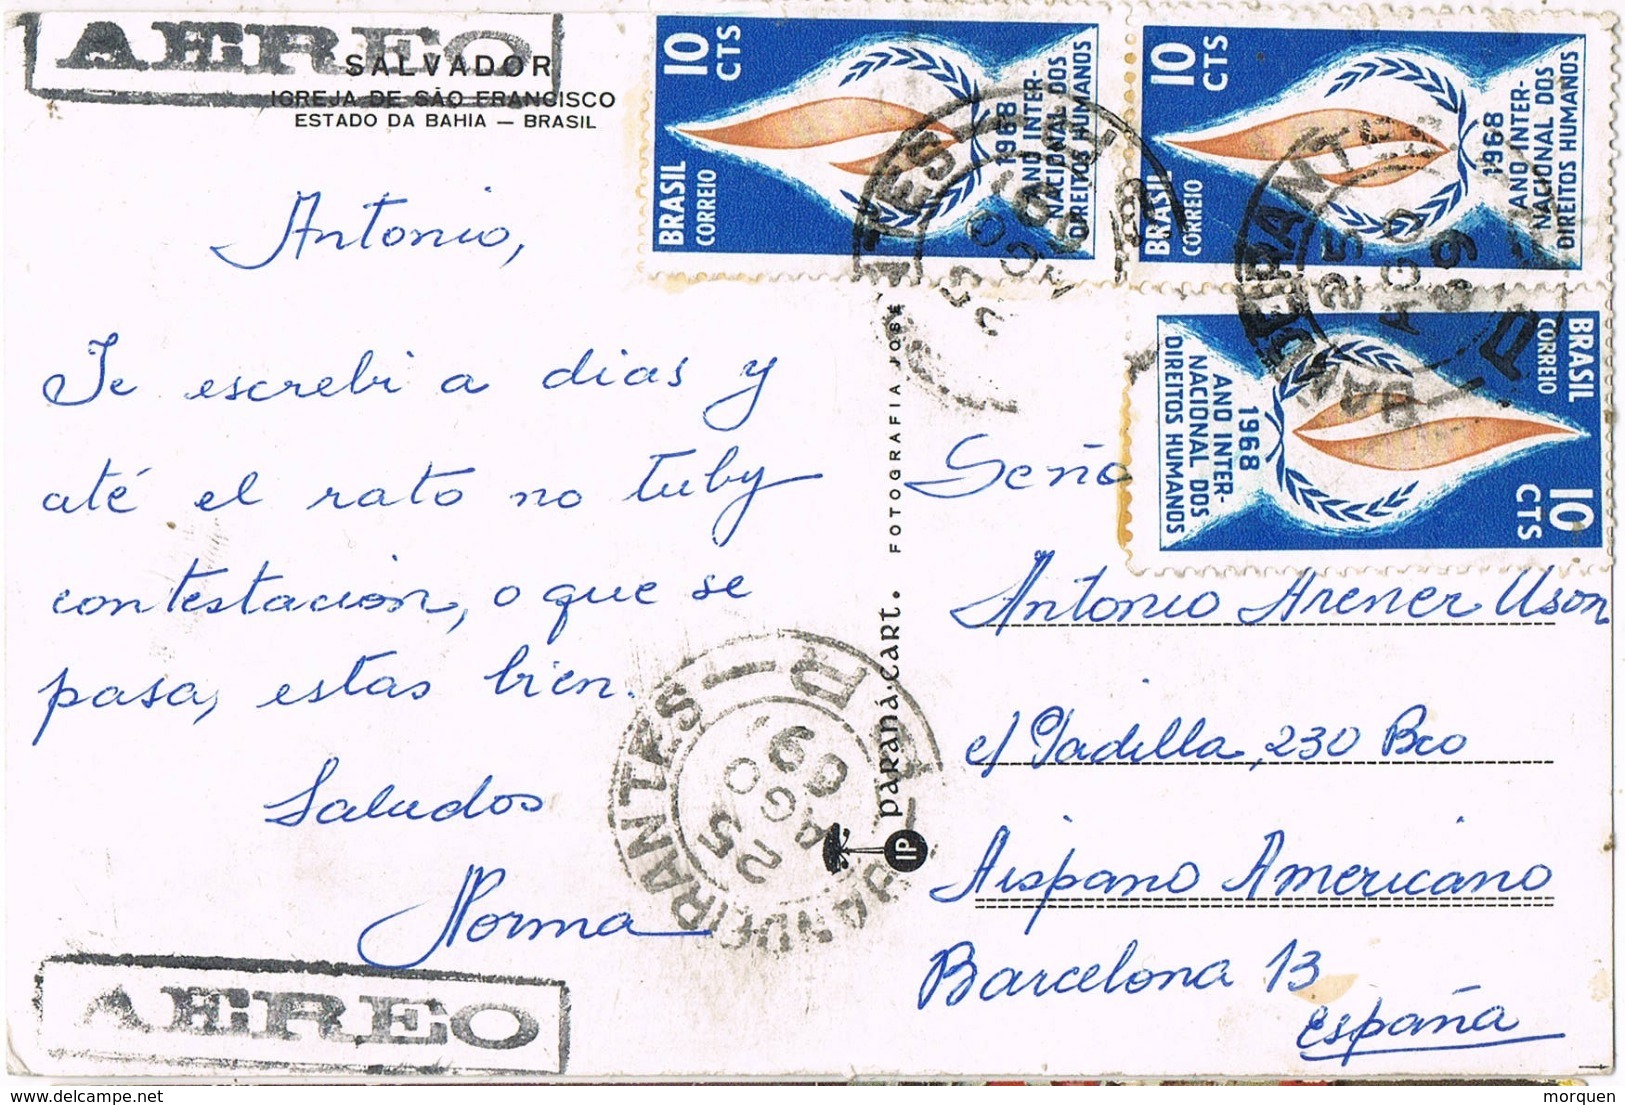 AEREO
SALVADOR
IGREJA DE SÃO FRANCISCO
ESTADO DA BAHIA — BRASIL
Antonio,
Te escrebi a dias y
até el rato no tuby
contestacion, o que se
pasa, estas bien.
Saludos
Norma
AEREO
10 CTS
BRASIL
CORREIO
1968
ANO INTER-
NACIONAL DOS
DIREITOS HUMANOS
10 CTS
BRASIL
CORREIO
1968
ANO INTER-
NACIONAL DOS
DIREITOS HUMANOS
10 CTS
BRASIL
CORREIO
1968
ANO INTER-
NACIONAL DOS
DIREITOS HUMANOS
BANDEIRANTES
25
AGO
69
FOTOGRAFIA JOSÉ
paraná·cart.
IP
Seño
Antonio Arener Uson
c/ Padilla, 230 Bco
Hispano Americano
Barcelona 13
España
delcampe.net
morquen